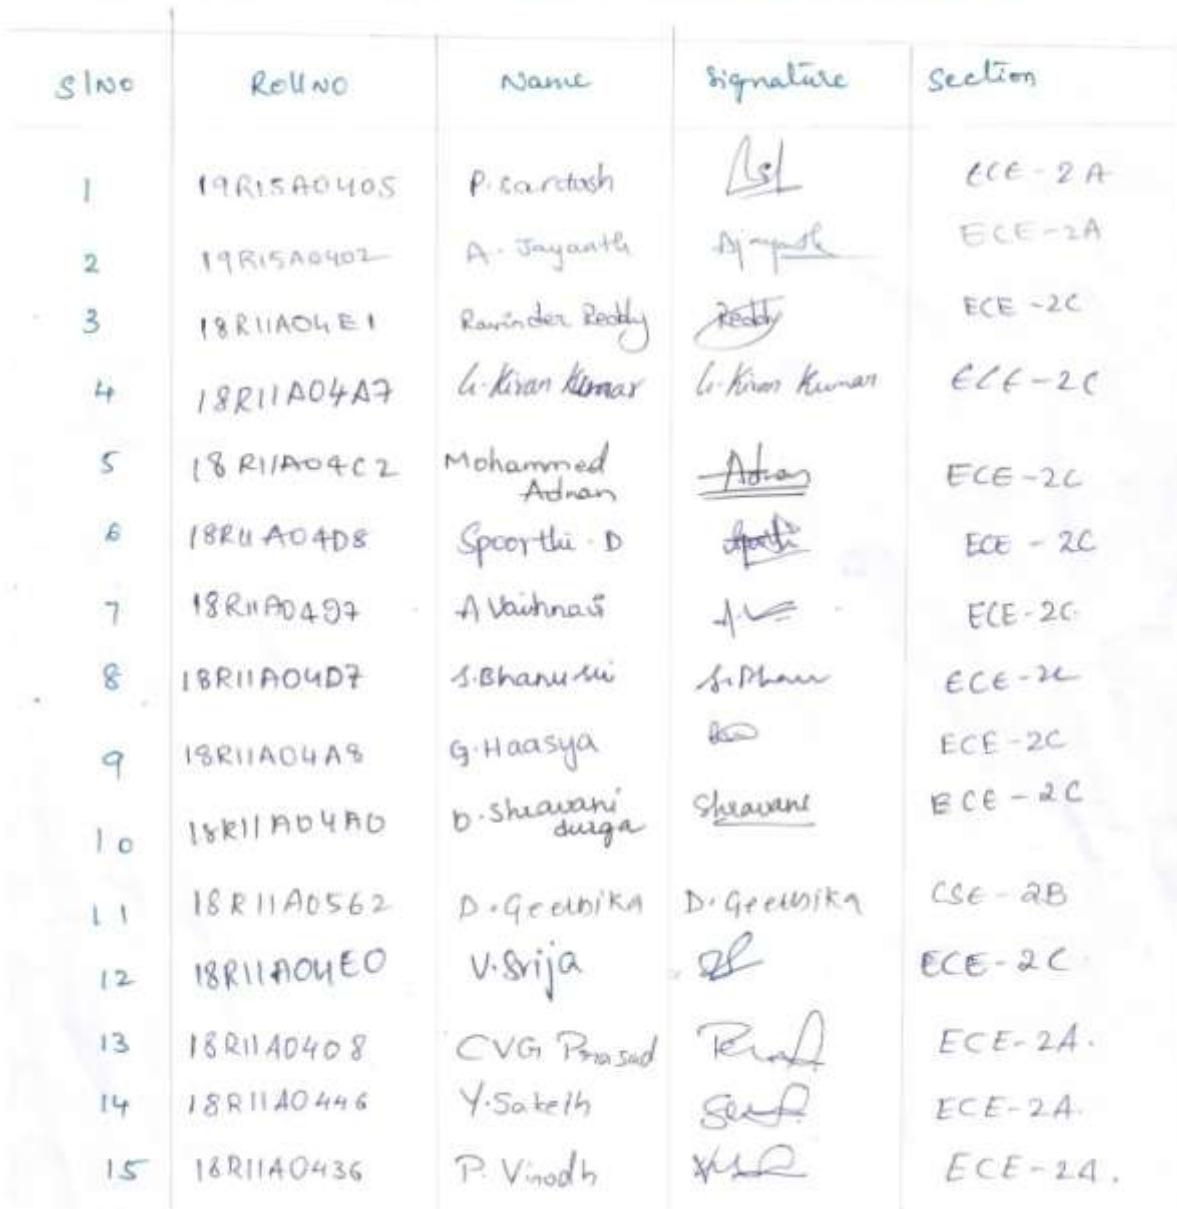 SlNo RollNO Name Signature Section
1 19R15A0405 P. Santosh ECE-2A
2 19R15A0402 A. Jayanth Ajayanth ECE-2A
3 18R11A04E1 Ravinder Reddy Reddy ECE-2C
4 18R11A04A7 G. Kiran Kumar G. Kiran Kumar ECE-2C
5 18R11A04C2 Mohammed Adnan Adnan ECE-2C
6 18R11A04D8 Spoorthi. D Spoorthi ECE-2C
7 18R11A0497 A Vaishnavi ECE-2C
8 18R11A04D7 S. Bhanu Sri S. Bhanu ECE-2C
9 18R11A04A8 G. Haasya ECE-2C
10 18R11A04A0 D. Shravani durga Shravani ECE-2C
11 18R11A0562 D. Geethika D. Geethika CSE-2B
12 18R11A04E0 V. Srija ECE-2C
13 18R11A0408 CVG Prasad ECE-2A.
14 18R11A0446 Y. Saketh ECE-2A.
15 18R11A0436 P. Vinodh ECE-2A.